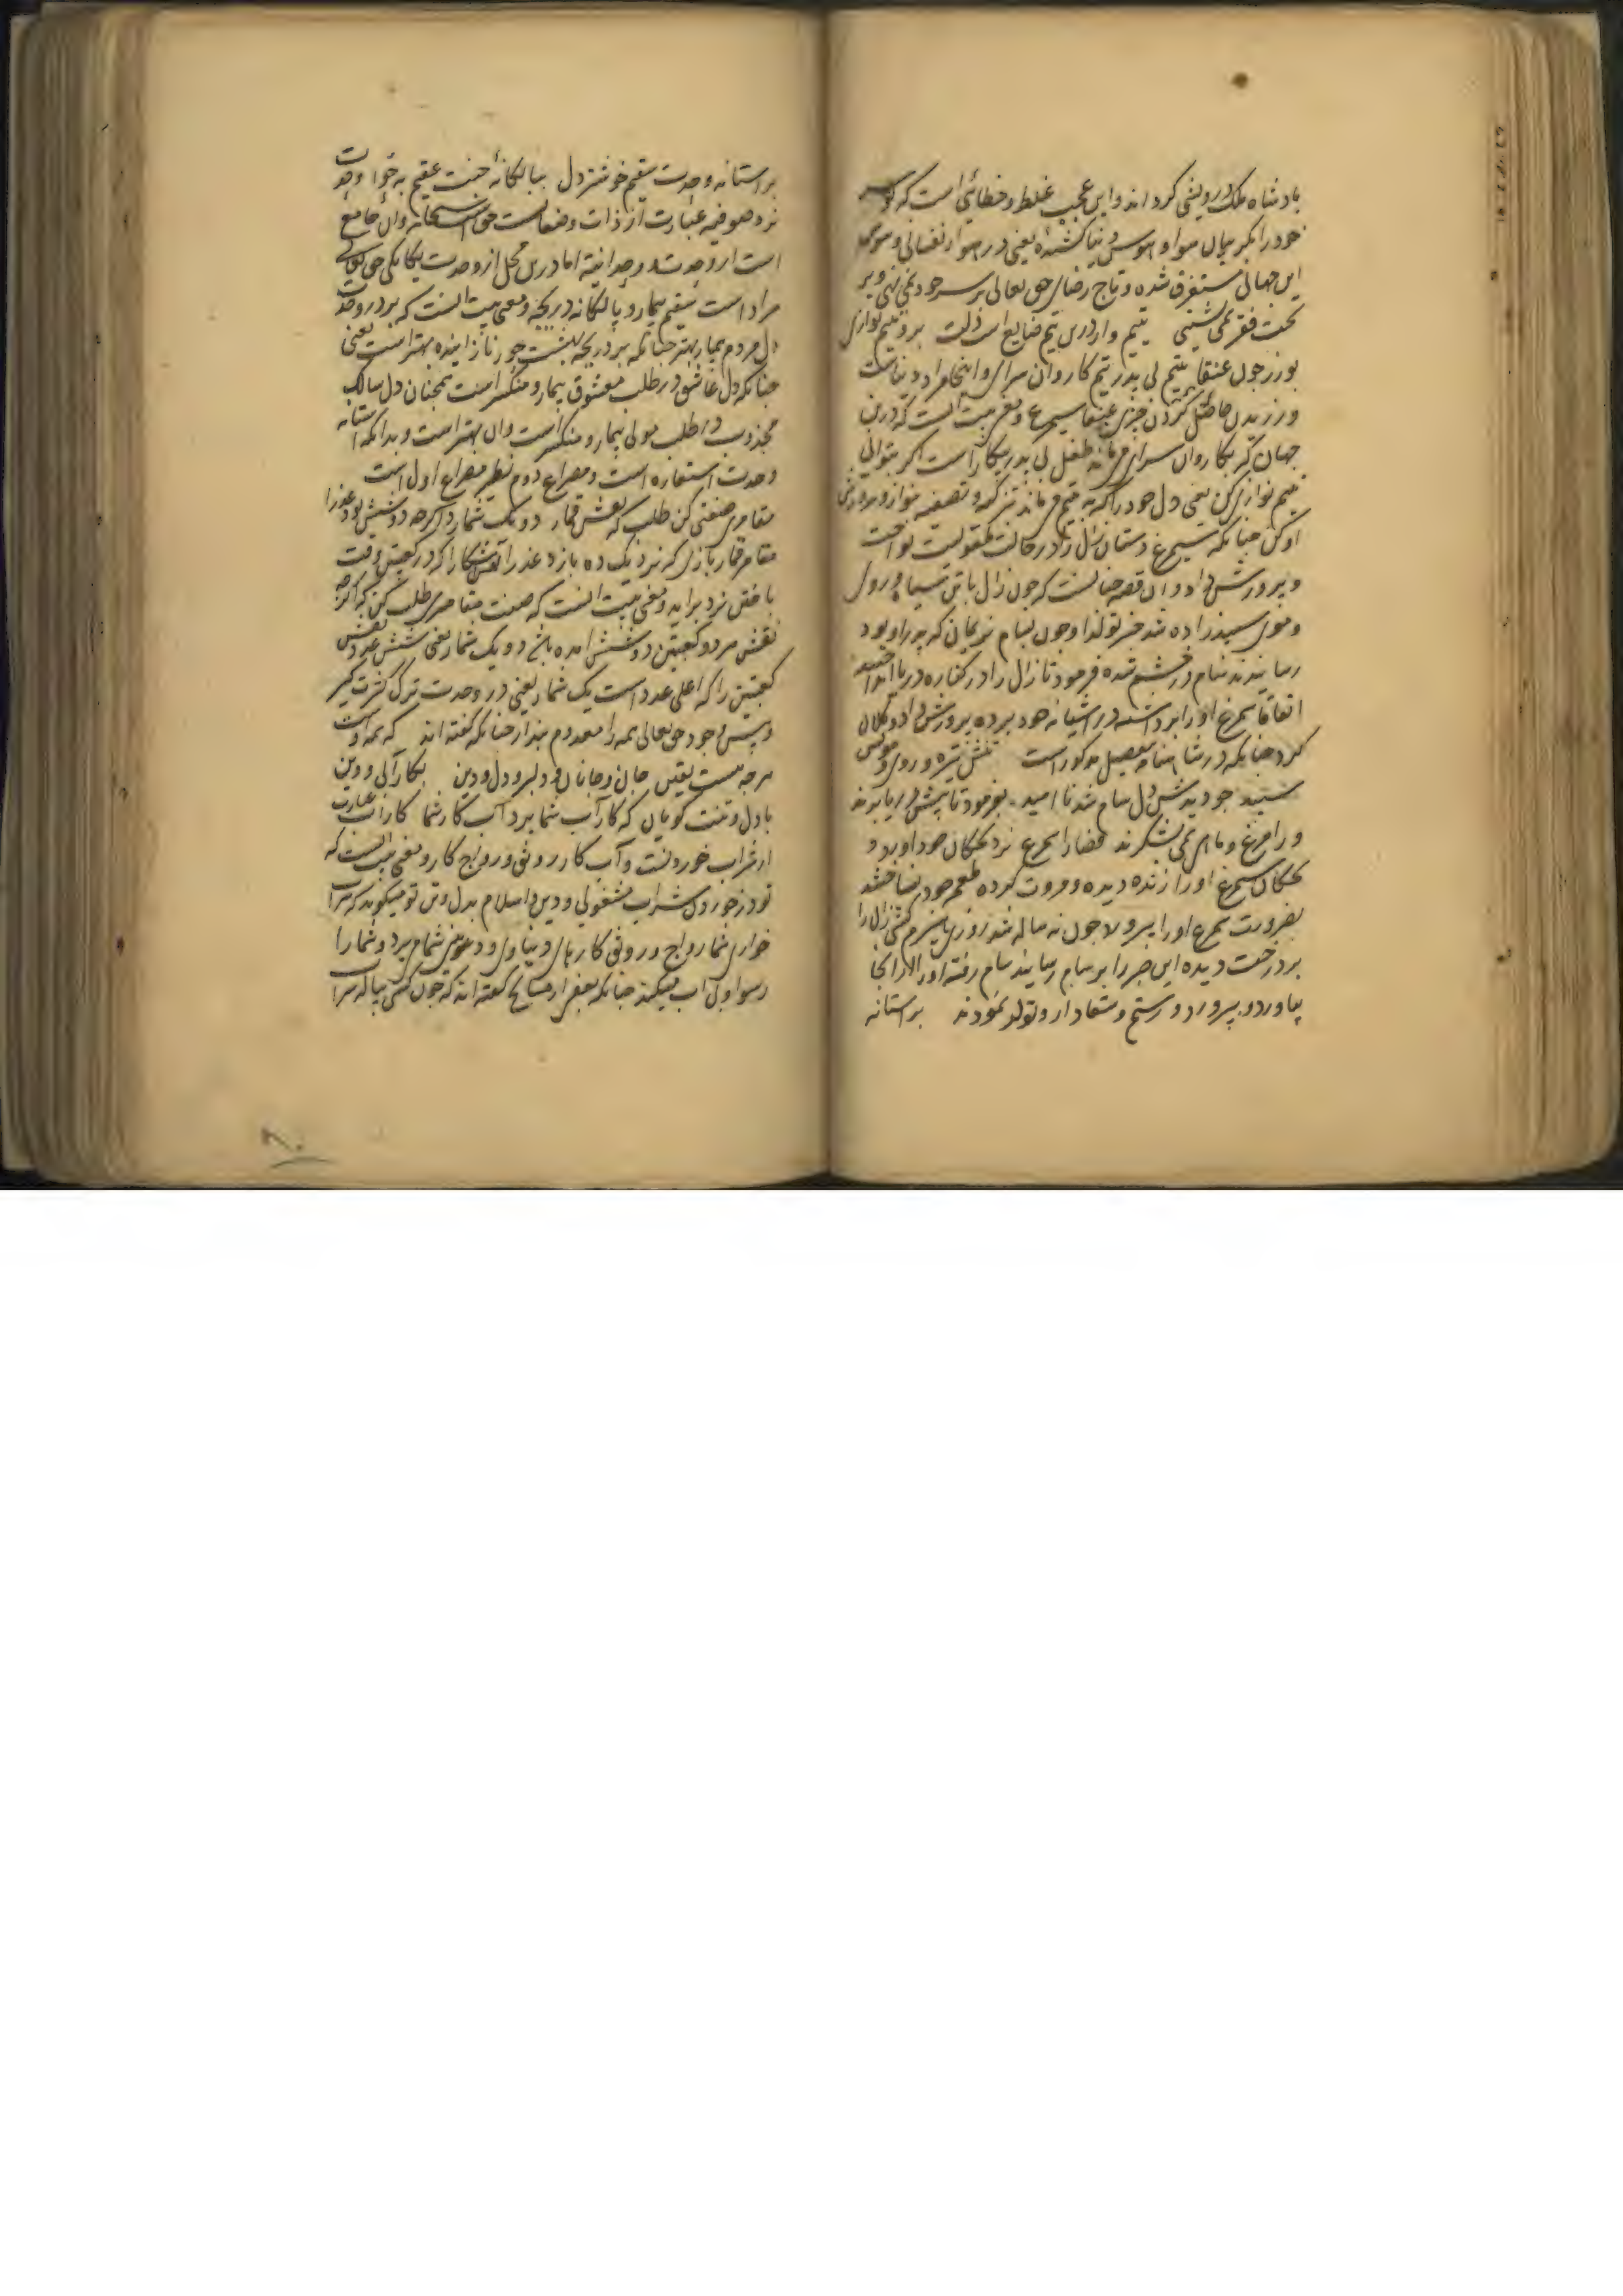 بادشاه ملک درویشی کرد اند و این عجب غلط و خطائی است که تو سر
خود را بگریبان هوا و هوس دنیا کشیدهٔ یعنی در هوار نفسانی و
این جهانی مستغرق شده و تاج رضای حق تعالی بر سر خود نمی نهی و بر
تخت فقر نمی نشینی یتیم وار درین تیم ضایع است دلت برو یتیم نوازی
بورز چون عنقا یتیم بی پدر تیم کاروان سرای و اینجا مراد دنیاست
ورزیدن حاصل کردن چیزی عنقا سیمرغ و معنی بیت آنست که درین
جهان که بکاروان سرای می ماند طفل بی پدر بیکار است اگر توانی
یتیم نوازی کن یعنی دل خود را که به یتیم می ماند تزکیه و تصفیه نواز و پرورش
او کن چنانکه سیمرغ دستان زال را در حالت طفولیت نواخت
و پرورش داد و آن قصه چنانست که چون زال با تن سیاه و روی
و موی سپید زاده شد خبر تولد او چون بسام نریمان که پدر او بود
رسانیدند سام در خشم شده فرمود تا زال را در کناره دریا انداختند
اتفاقا سیمرغ او را برداشته در اشیانه خود برده پرورش داد و کلان
کرد چنانکه در شاهنامه بتفصیل مذکور است تنش تیره و روی و مویش
سپید چو دیدش دل سام شد نا امید بفرمود تا پیش دریا برند
و را مرغ و ماهی بشکرند قضا را سیمرغ نزد بچگان خود آورد و
بچگان سیمرغ او را زنده دیده و مروت کرده طعمه خود نساختند
بضرورت سیمرغ او را پرورد چون نه ساله شد روزی هیزم کشی زال را
بر درخت دیده این خبر را بر سام رسانید سام رفته او را از انجا
بیاورد و بپرورد و رستم و شغاد از و تولد نمودند بر استانه
بر استانه وحدت سقیم خوشتر دل ببالکانهٔ جنت عقیم به حوا وحدت
نزد صوفیه عبارت از ذات و صفات حق سبحانه و ان جامع
است از وحدت و وحدانیته اما درین محل از وحدت یکانکی حق تعالی
مراد است سقیم بیمار و بالکانه دریچه و معنی بیت آنست که بر در وحدت
دل مردم بیمار بهتر چنانکه بر دریچه بهشت حور نازاینده بهتر است یعنی
چنانکه دل عاشق در طلب معشوق بیمار و منکسر است همچنان دل سالک
مجذوب در طلب مولی بیمار و منکسر است و ان بهتر است و بدانکه استانه
وحدت استعاره است و مصراع دوم نظیر مصراع اول است
مقامری صفتی کن طلب که نقش قمار دو یک شمارد اگرچه دو شش بود عذرا
مقامر قمار بازی که نرد یک ده بازد عذرا نقش شش را که در کعبتین وقت
باختن نرد براید و معنی بیت آنست که صفت مقامری طلب کن که اگرچه
نقش هر دو کعبتین دو شش امده باشد دو یک شمار یعنی شش عدد نقش
کعبتین را که اعلی عدد است یک شمار یعنی در وحدت ترک کثرت گیر
و پیش وجود حق تعالی همه را معدوم پندار چنانکه گفته اند که همه اوست
هرچه هست یقین جان و جانان و دلبر و دل و دین بکار آبی و دین
با دل و تنت گویان که کار آب شما برد آب کار شما کار آب عبارت
از شراب خوردنست و آب کار رونق و رواج کار و معنی بیت آنست که
تو در خوردن شراب مشغولی و دین و اسلام بدل و تن تو میگویند که شراب
خواری شما رواج و رونق کارهای دنیاوی و دینی شما می برد و شما را
رسوا و بی آب میکند چنانکه بعضی از مشایخ گفته اند که چون کسی پیاله شراب